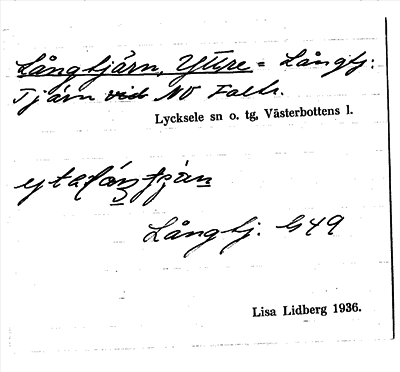 Långtjärn, Yttre = Långtj:
Tjärn vid NO Faltr.
Lycksele sn o. tg, Västerbottens l.
Långtj. G49
Lisa Lidberg 1936.